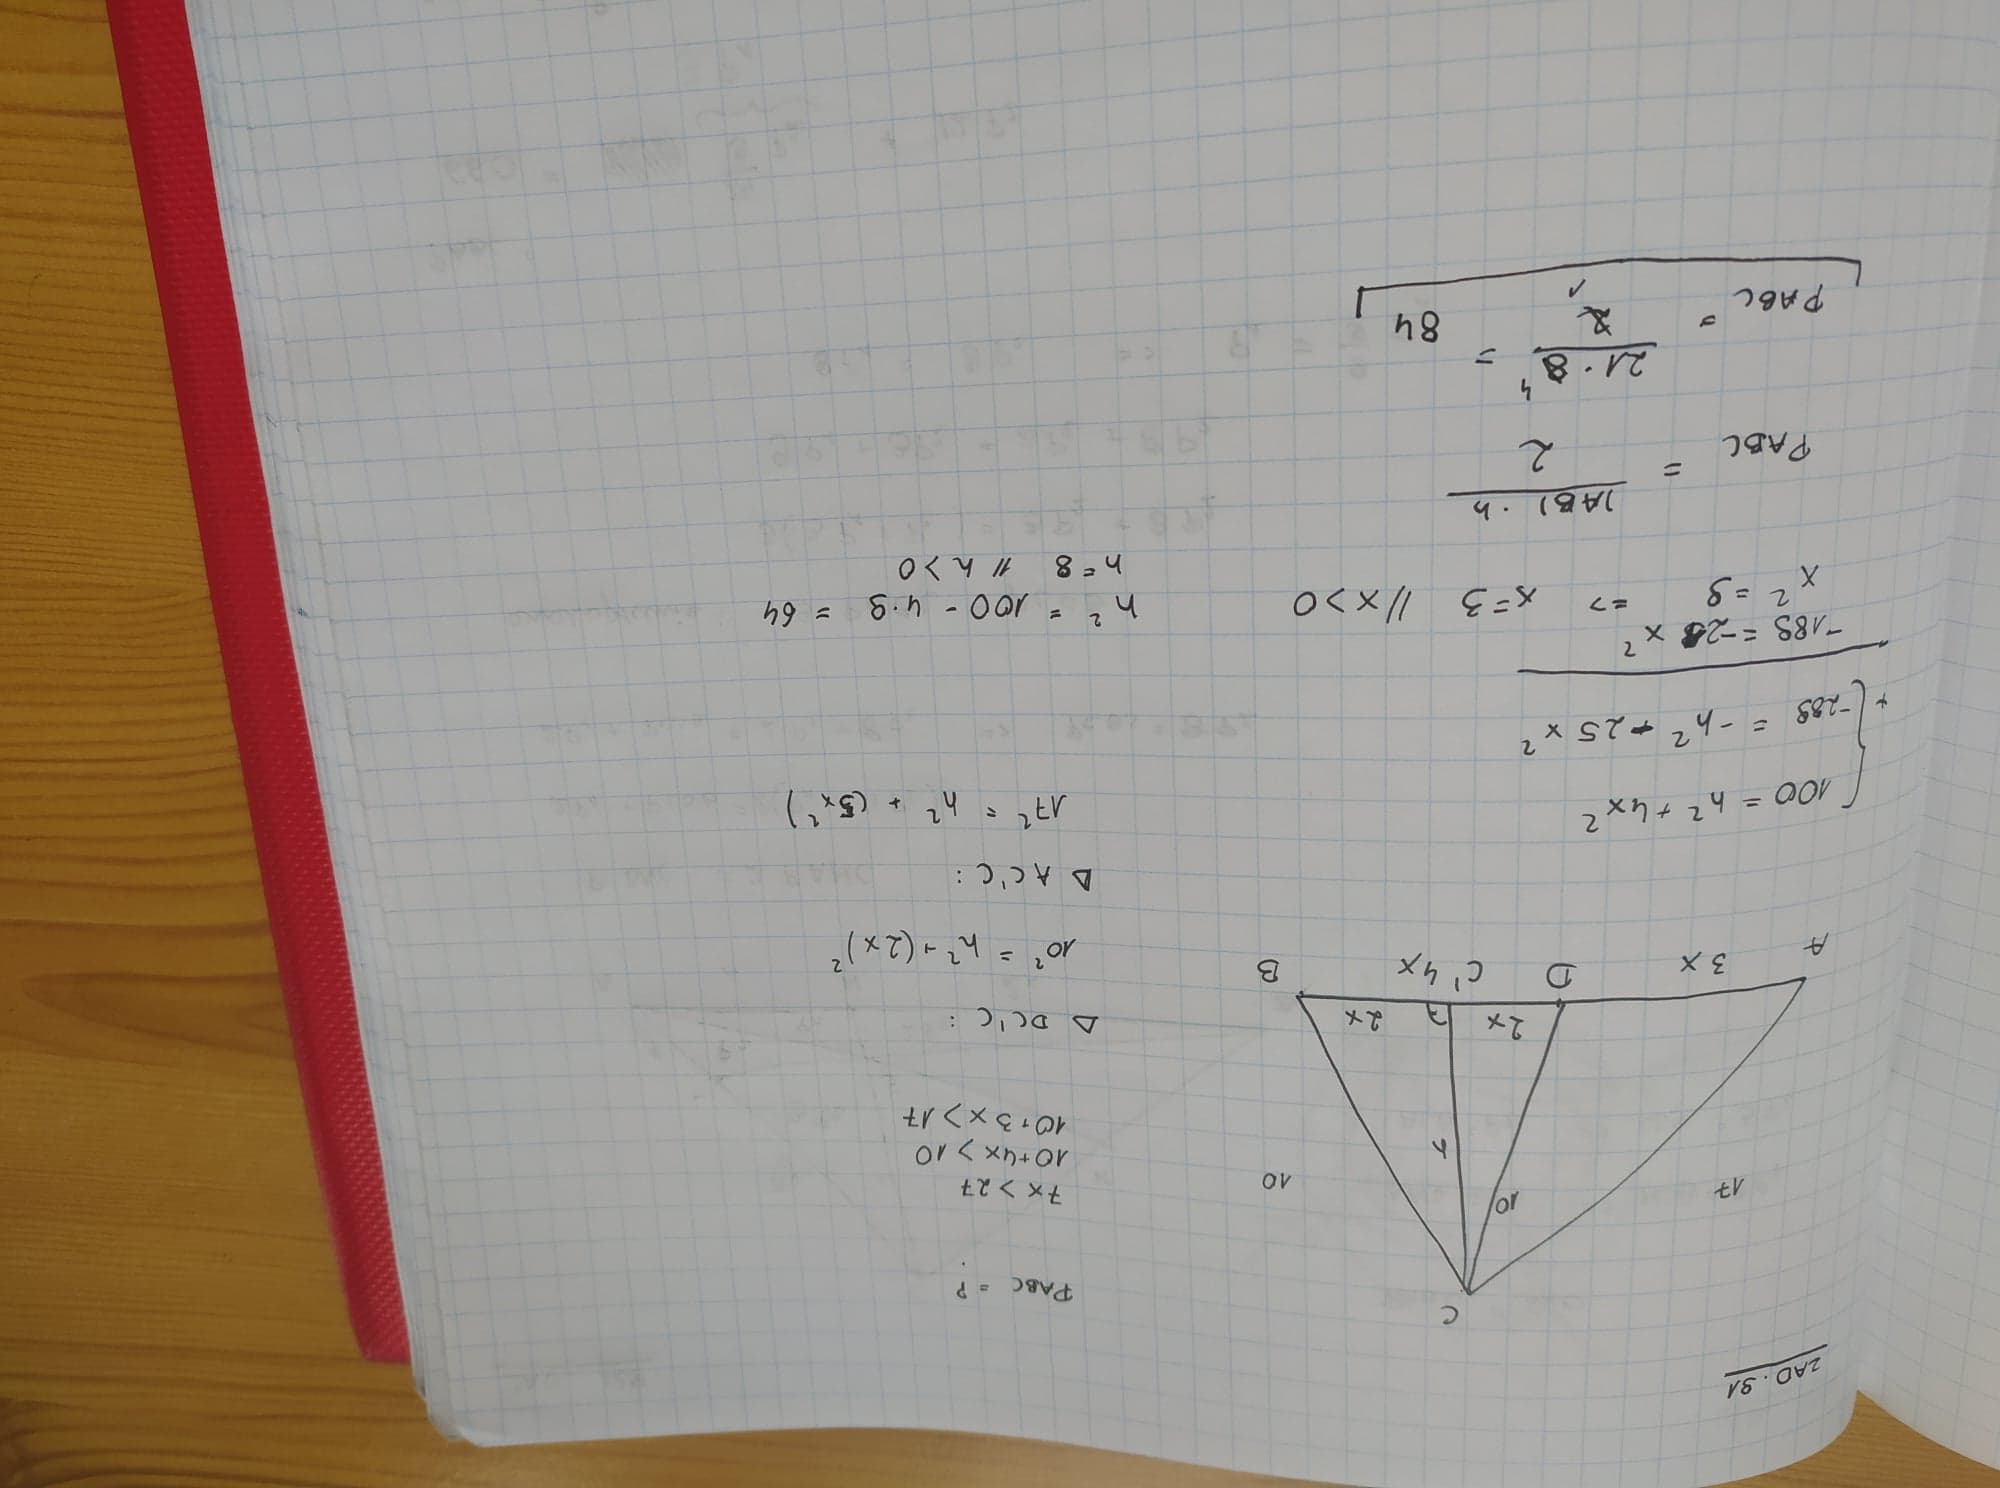 ZAD. 91
C
17
10
10
h
2x
2x
A
3x
D
C'
4x
B
P ABC = ?
7x > 27
10+4x > 10
10+3x > 17
Δ DC'C :
10² = h² + (2x)²
Δ AC'C :
17² = h² + (5x²)
100 = h² + 4x²
+ -289 = -h² - 25x²
-189 = -21x²
x² = 9 => x=3 // x>0
h² = 100 - 4·9 = 64
h = 8 // h>0
P ABC = |AB| · h / 2
P ABC = 21 · 8 4 / 2 1 = 84